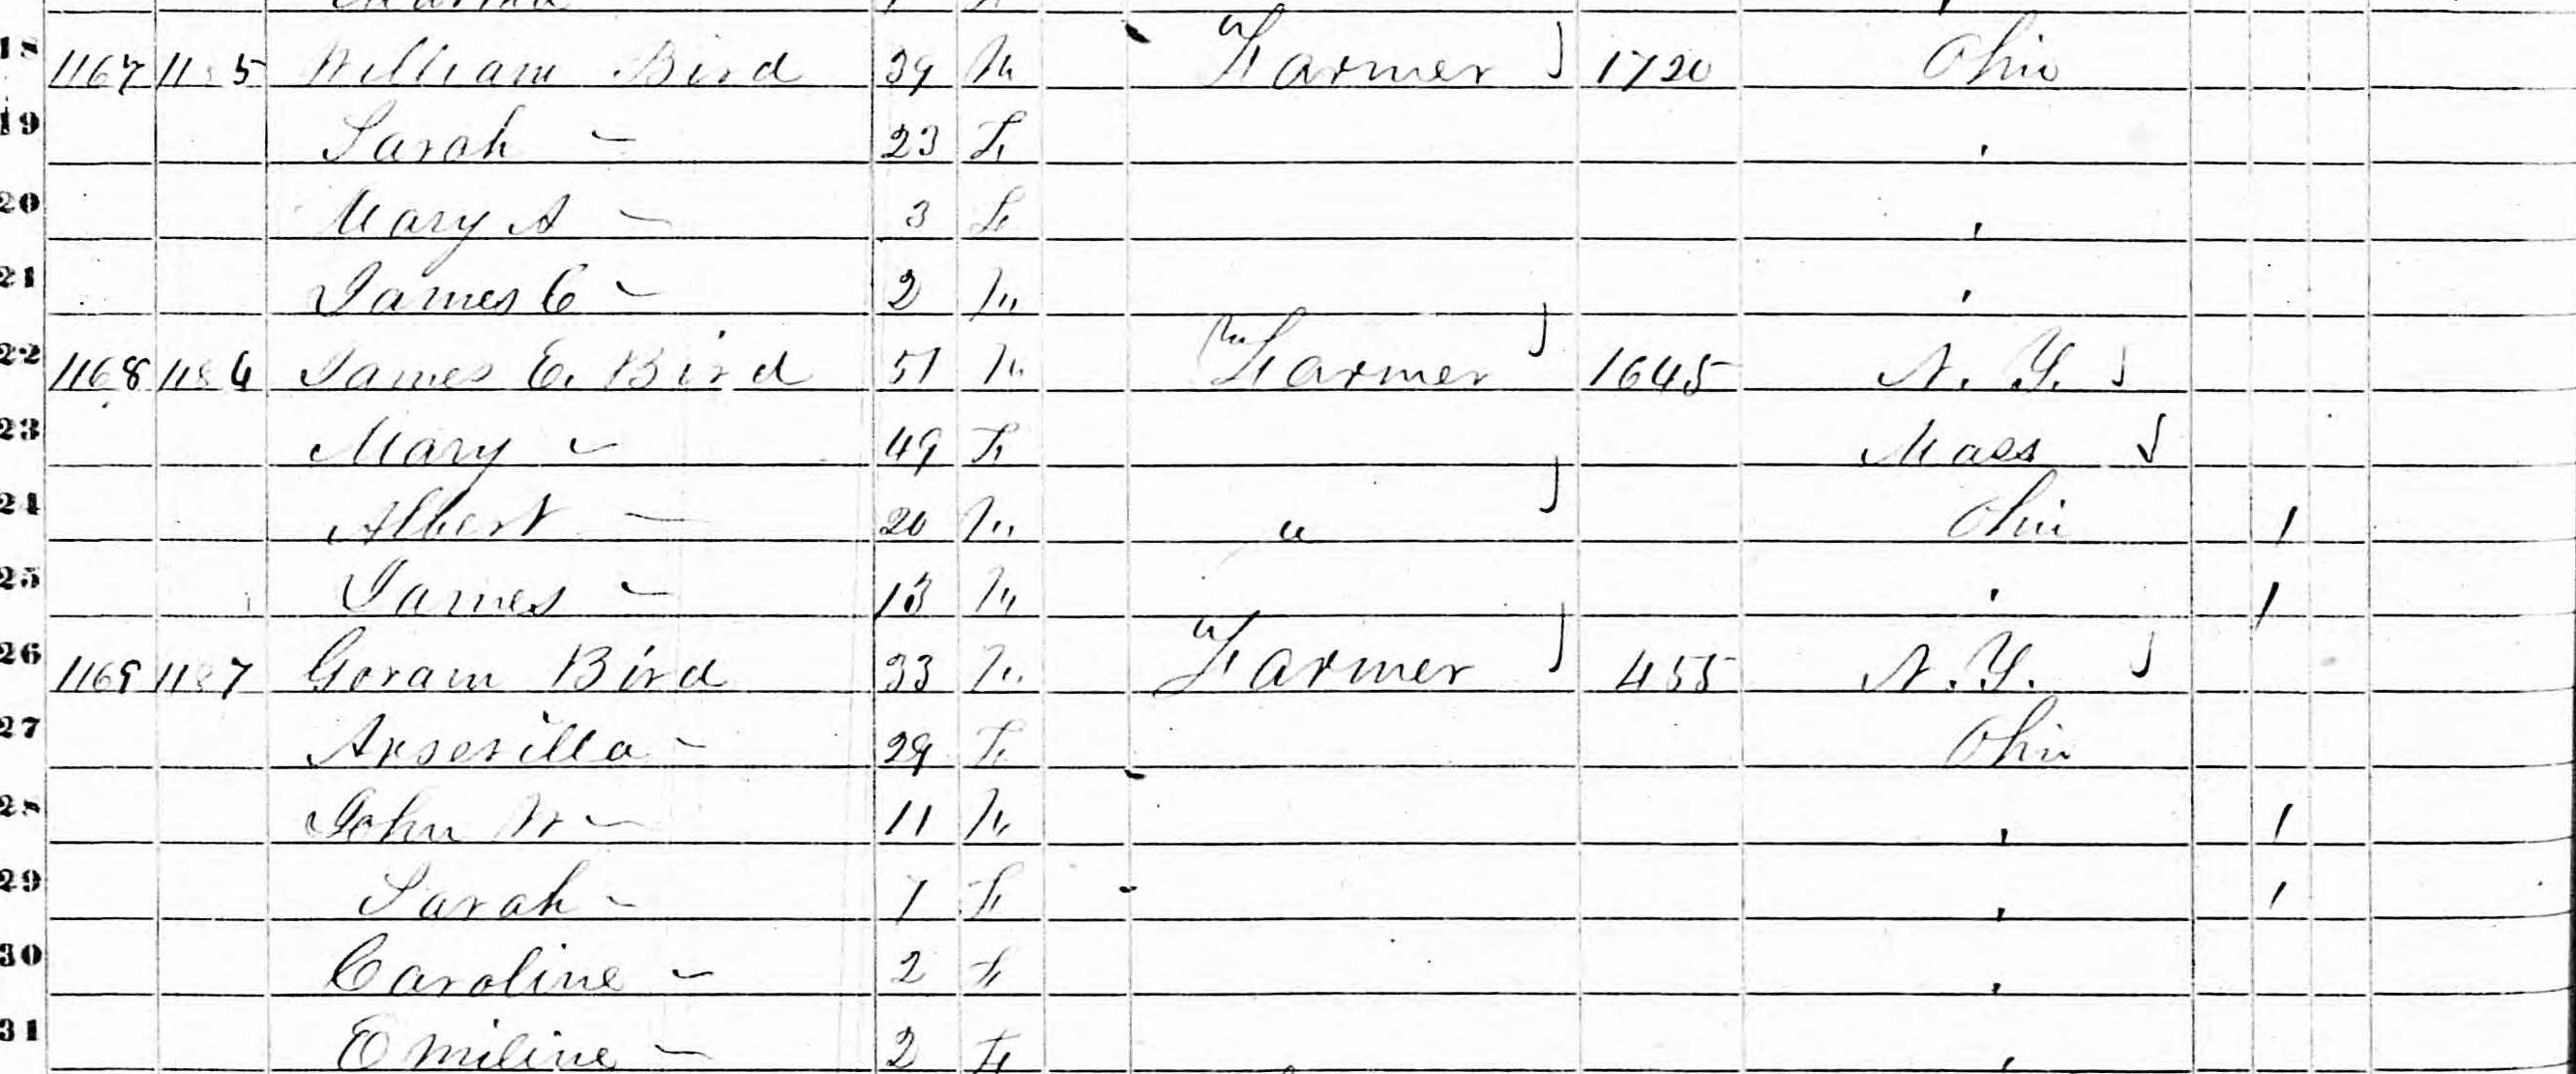 18 1167 1185 William Bird 39 M Farmer 1720 Ohio
19 Sarah — 23 F '
20 Mary A — 3 F '
21 James C — 2 M '
22 1168 1186 James E. Bird 51 M Farmer 1645 N. Y.
23 Mary — 49 F Mass
24 Albert — 20 M " Ohio 1
25 James — 13 M ' 1
26 1169 1187 Goram Bird 33 M Farmer 455 N. Y.
27 Arserilla — 29 F Ohio
28 John W — 11 M ' 1
29 Sarah — 7 F ' 1
30 Caroline — 2 F '
31 Emiline — 2 F '